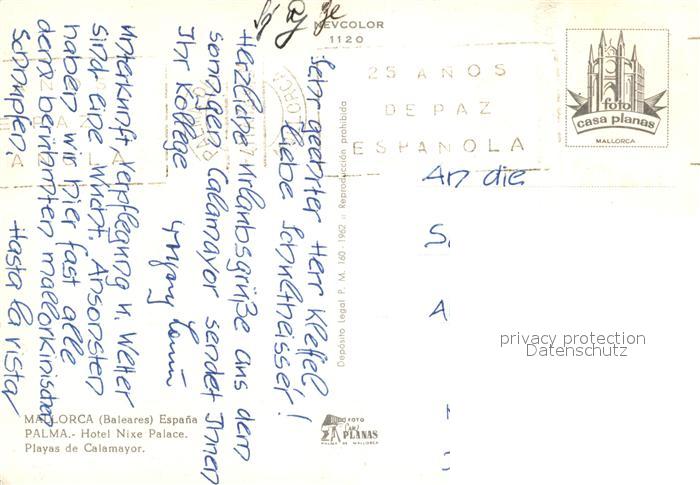 NEVCOLOR
1120
25 AÑOS
DE PAZ
ESPAÑOLA
foto
casa planas
MALLORCA
Sehr geehrter Herr Kleffel
liebe Schultheisser!
Herzliche Urlaubsgrüße aus dem
sonnigen Calamayor sendet Ihnen
Ihr Kollege
Unterkunft Verpflegung u. Wetter
sind eine Wucht. Ansonsten
haben wir hier fast alle
den berühmten mallorkinischen
Schnupfen.
Hasta la vista
Depósito Legal P. M. 160-1962 :: Reproducción prohibida
An die
S.
A
privacy protection
Datenschutz
MALLORCA (Baleares) España
PALMA.- Hotel Nixe Palace.
Playas de Calamayor.
FOTO
CASA
PLANAS
PALMA DE MALLORCA